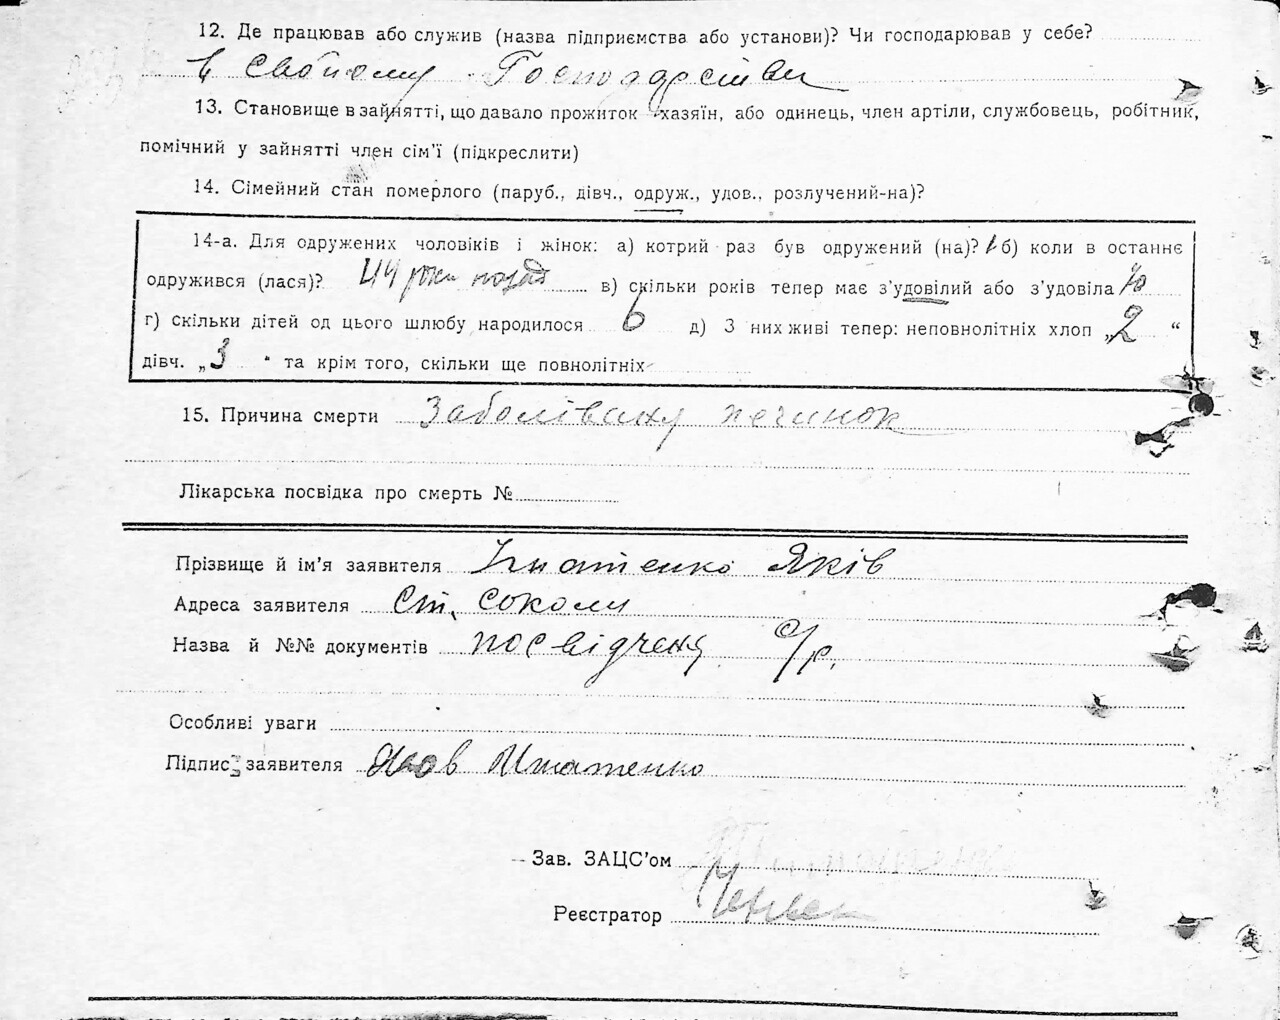 12. Де працював або служив (назва підприємства або установи)? Чи господарював у себе?
в своїому Господрстви
13. Становище в зайнятті, що давало прожиток хазяїн, або одинець, член артіли, службовець, робітник,
помічний у зайнятті член сім'ї (підкреслити)
14. Сімейний стан померлого (паруб., дівч., одруж., удов., розлучений-на)?
14-а. Для одружених чоловіків і жінок: а) котрий раз був одружений (на)? 1 б) коли в останнє
одружився (лася)? 44 роки позад в) скільки років тепер має з'удовілий або з'удовіла
г) скільки дітей од цього шлюбу народилося 6 д) З них живі тепер: неповнолітніх хлоп „2 “
дівч. „3 “ та крім того, скільки ще повнолітніх
15. Причина смерти Заболіваня печинок
Лікарська посвідка про смерть №
Прізвище й ім'я заявителя Ігнатенко Яків
Адреса заявителя ст. соколи
Назва й №№ документів посвідченя с/р.
Особливі уваги
Підпис заявителя Яков Игнатенко
Зав. ЗАЦС'ом
Реєстратор